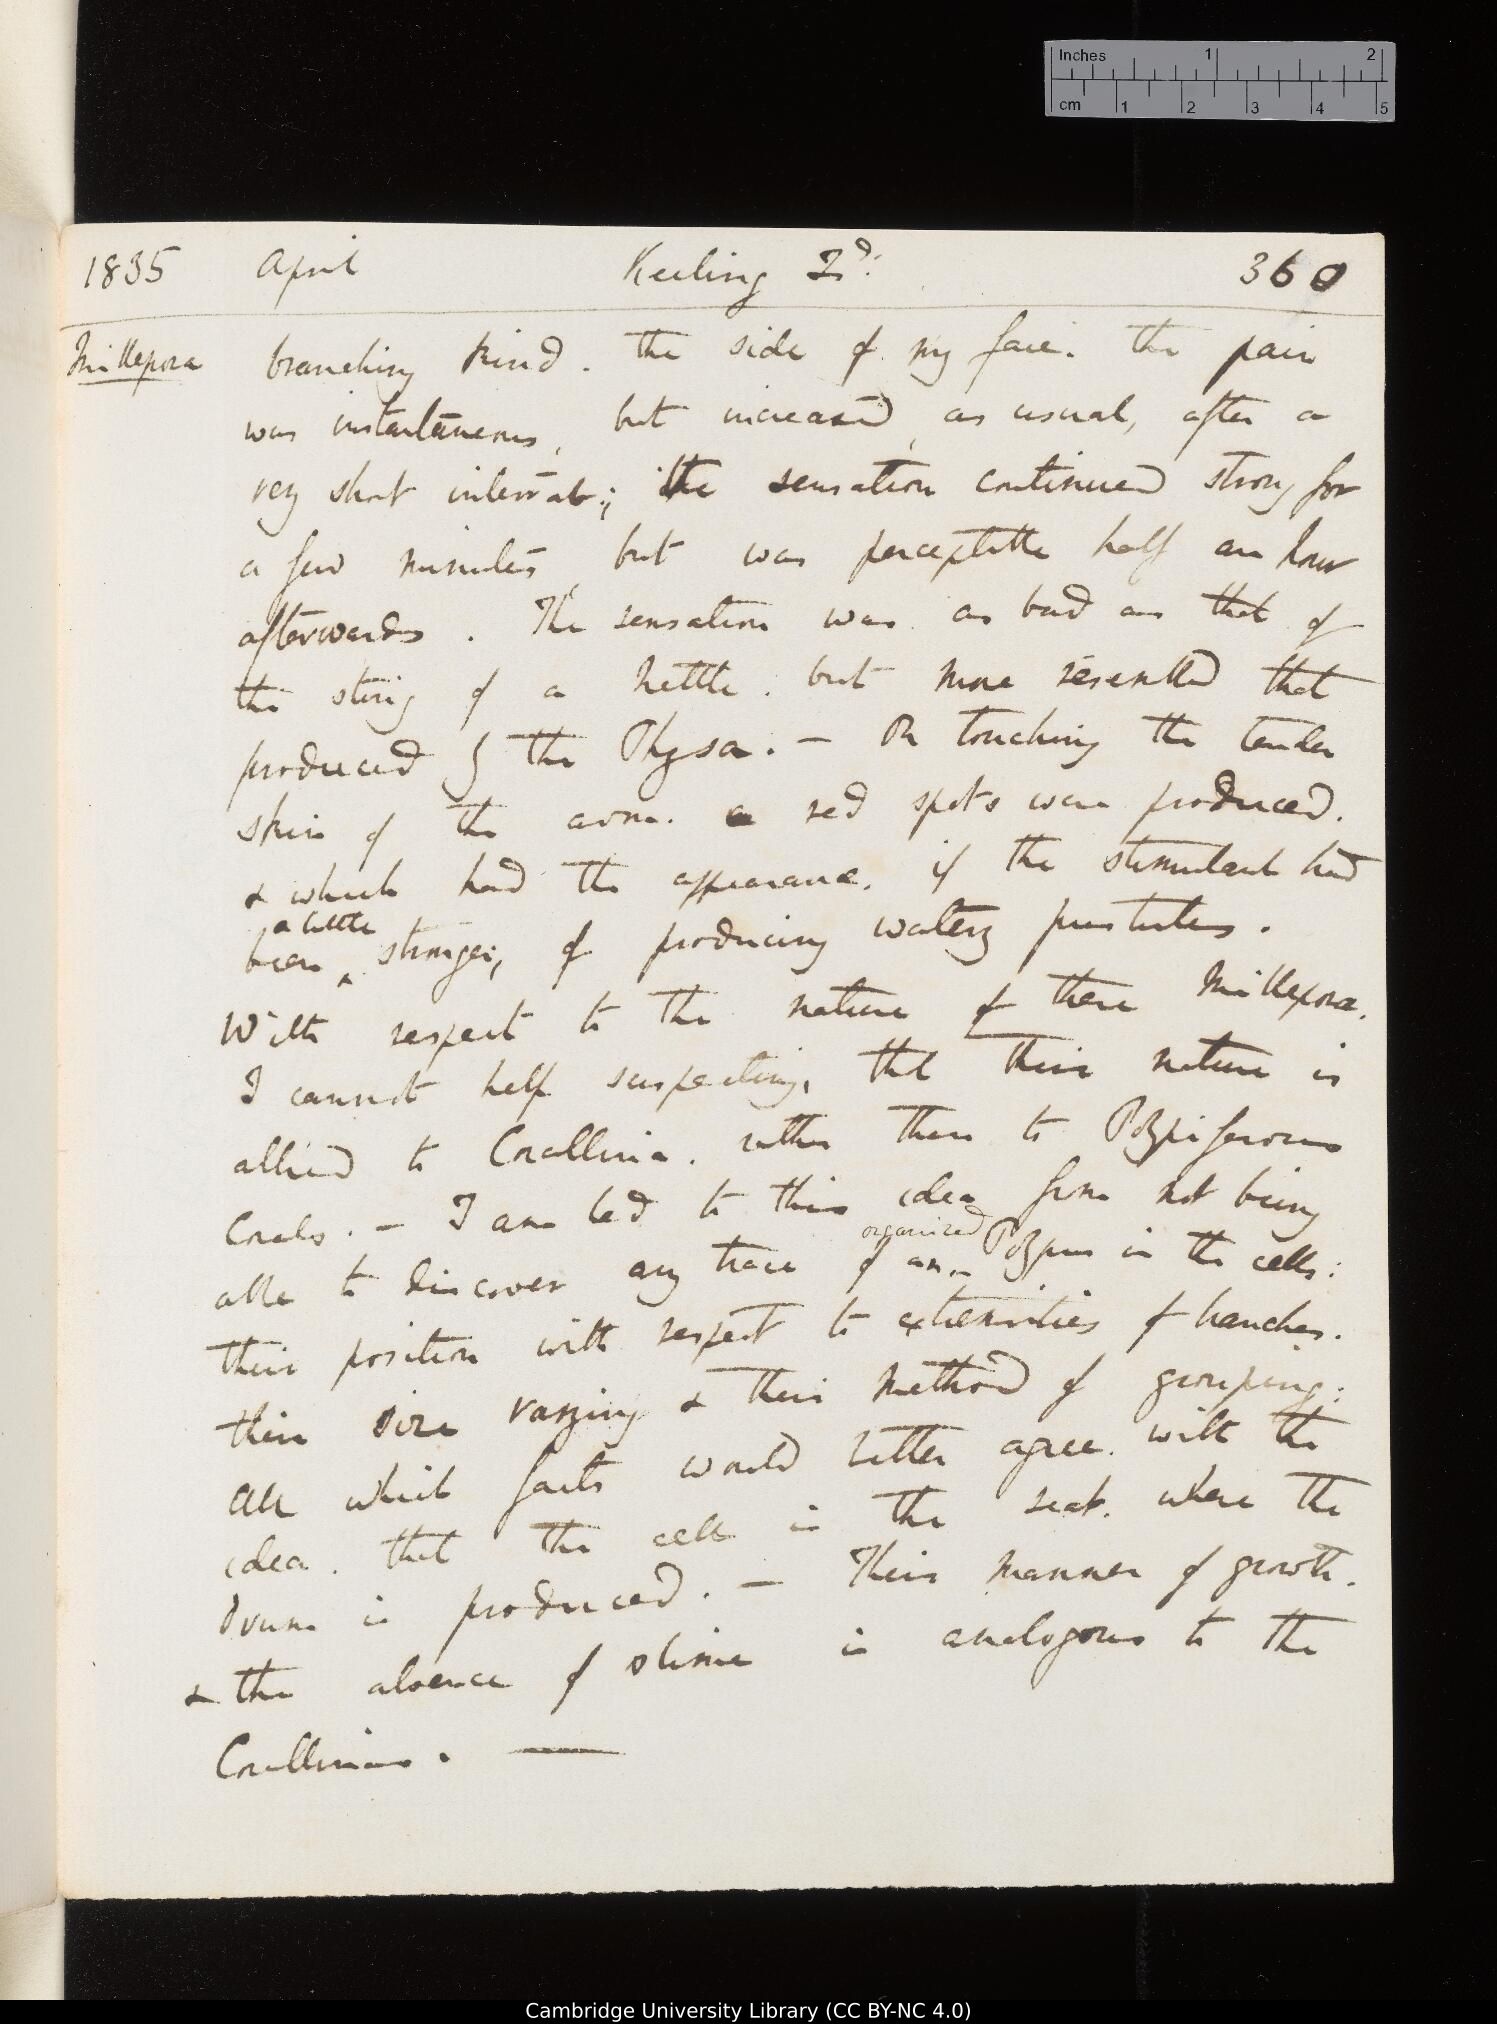 Inches 1 2
cm 1 2 3 4 5
1835 April Keeling Id: 360
Millepora branching kind. the side of my face. the pain
was instantaneous, but increased, as usual, after a
very short interval:; the sensation continued strong for
a few minutes, but was perceptible half an hour
afterwards. The sensation was as bad as that of
the sting of a nettle. but more resembled that
produced by the Physa. — On touching the tender
skin of the arm. red spots were produced.
& which had the appearance, if the stimulant had
a little
been ^ stronger, of producing watery pustules.
With respect to the nature of these Millepora.
I cannot help suspecting, that their nature is
allied to Corallina. rather than to Polypiferous
Corals. — I am led to this idea from not being
organized
able to discover any trace of an ^ Polypus in the cells:
their position with respect to extremities of branches.
their size varying & their method of grouping:
All which facts would better agree. with the
idea. that the cell is the seat. where the
Ovum is produced. — Their manner of growth.
& the absence of slime is analogous to the
Corallinas. —
Cambridge University Library (CC BY-NC 4.0)